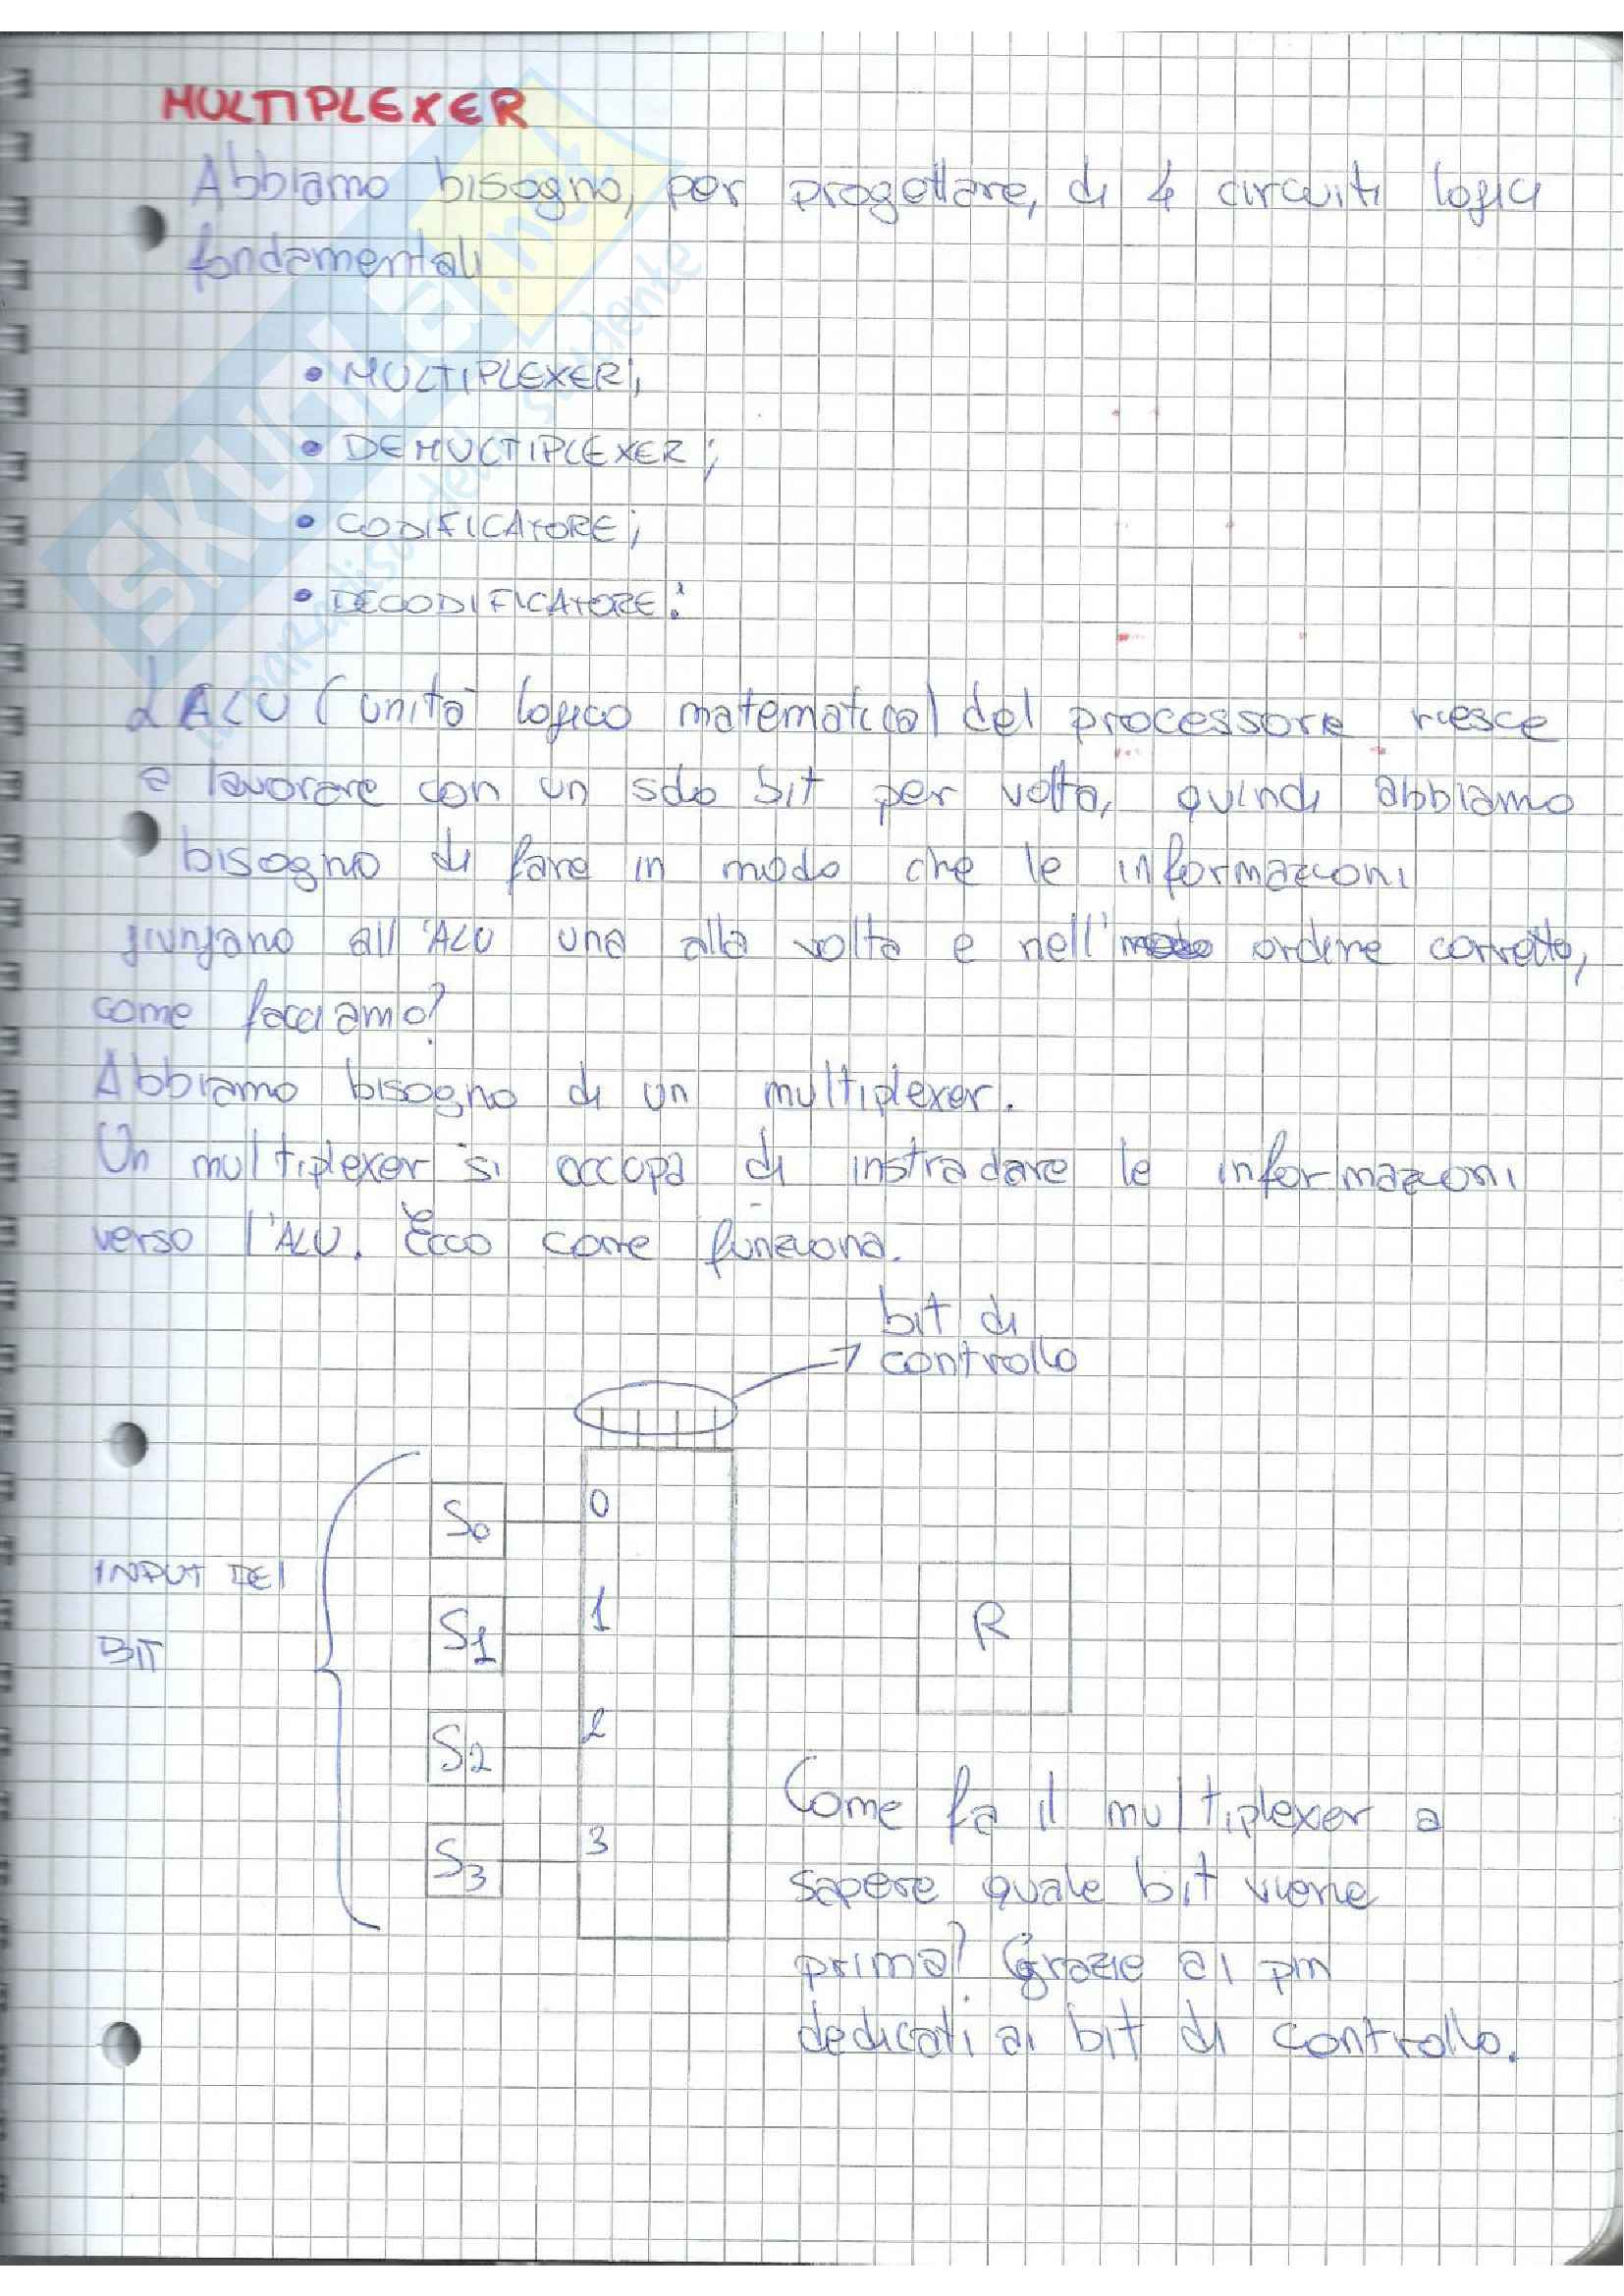 MULTIPLEXER
Abbiamo bisogno, per progettare, di 4 circuiti logici
fondamentali
• MULTIPLEXER;
• DEMULTIPLEXER;
• CODIFICATORE;
• DECODIFICATORE:
L'ALU (unità logico matematica) del processore riesce
a lavorare con un solo bit per volta, quindi abbiamo
bisogno di fare in modo che le informazioni
giungano all'ALU una alla volta e nell'ordine corretto,
come facciamo?
Abbiamo bisogno di un multiplexer.
Un multiplexer si occupa di instradare le informazioni
verso l'ALU. Ecco come funziona.
bit di
controllo
S0 0
INPUT DEI
BIT
S1 1
R
S2 2
S3 3
Come fa il multiplexer a
sapere quale bit viene
prima? Grazie ai pin
dedicati ai bit di controllo.
SKUOLA.net
il paradiso dello studente